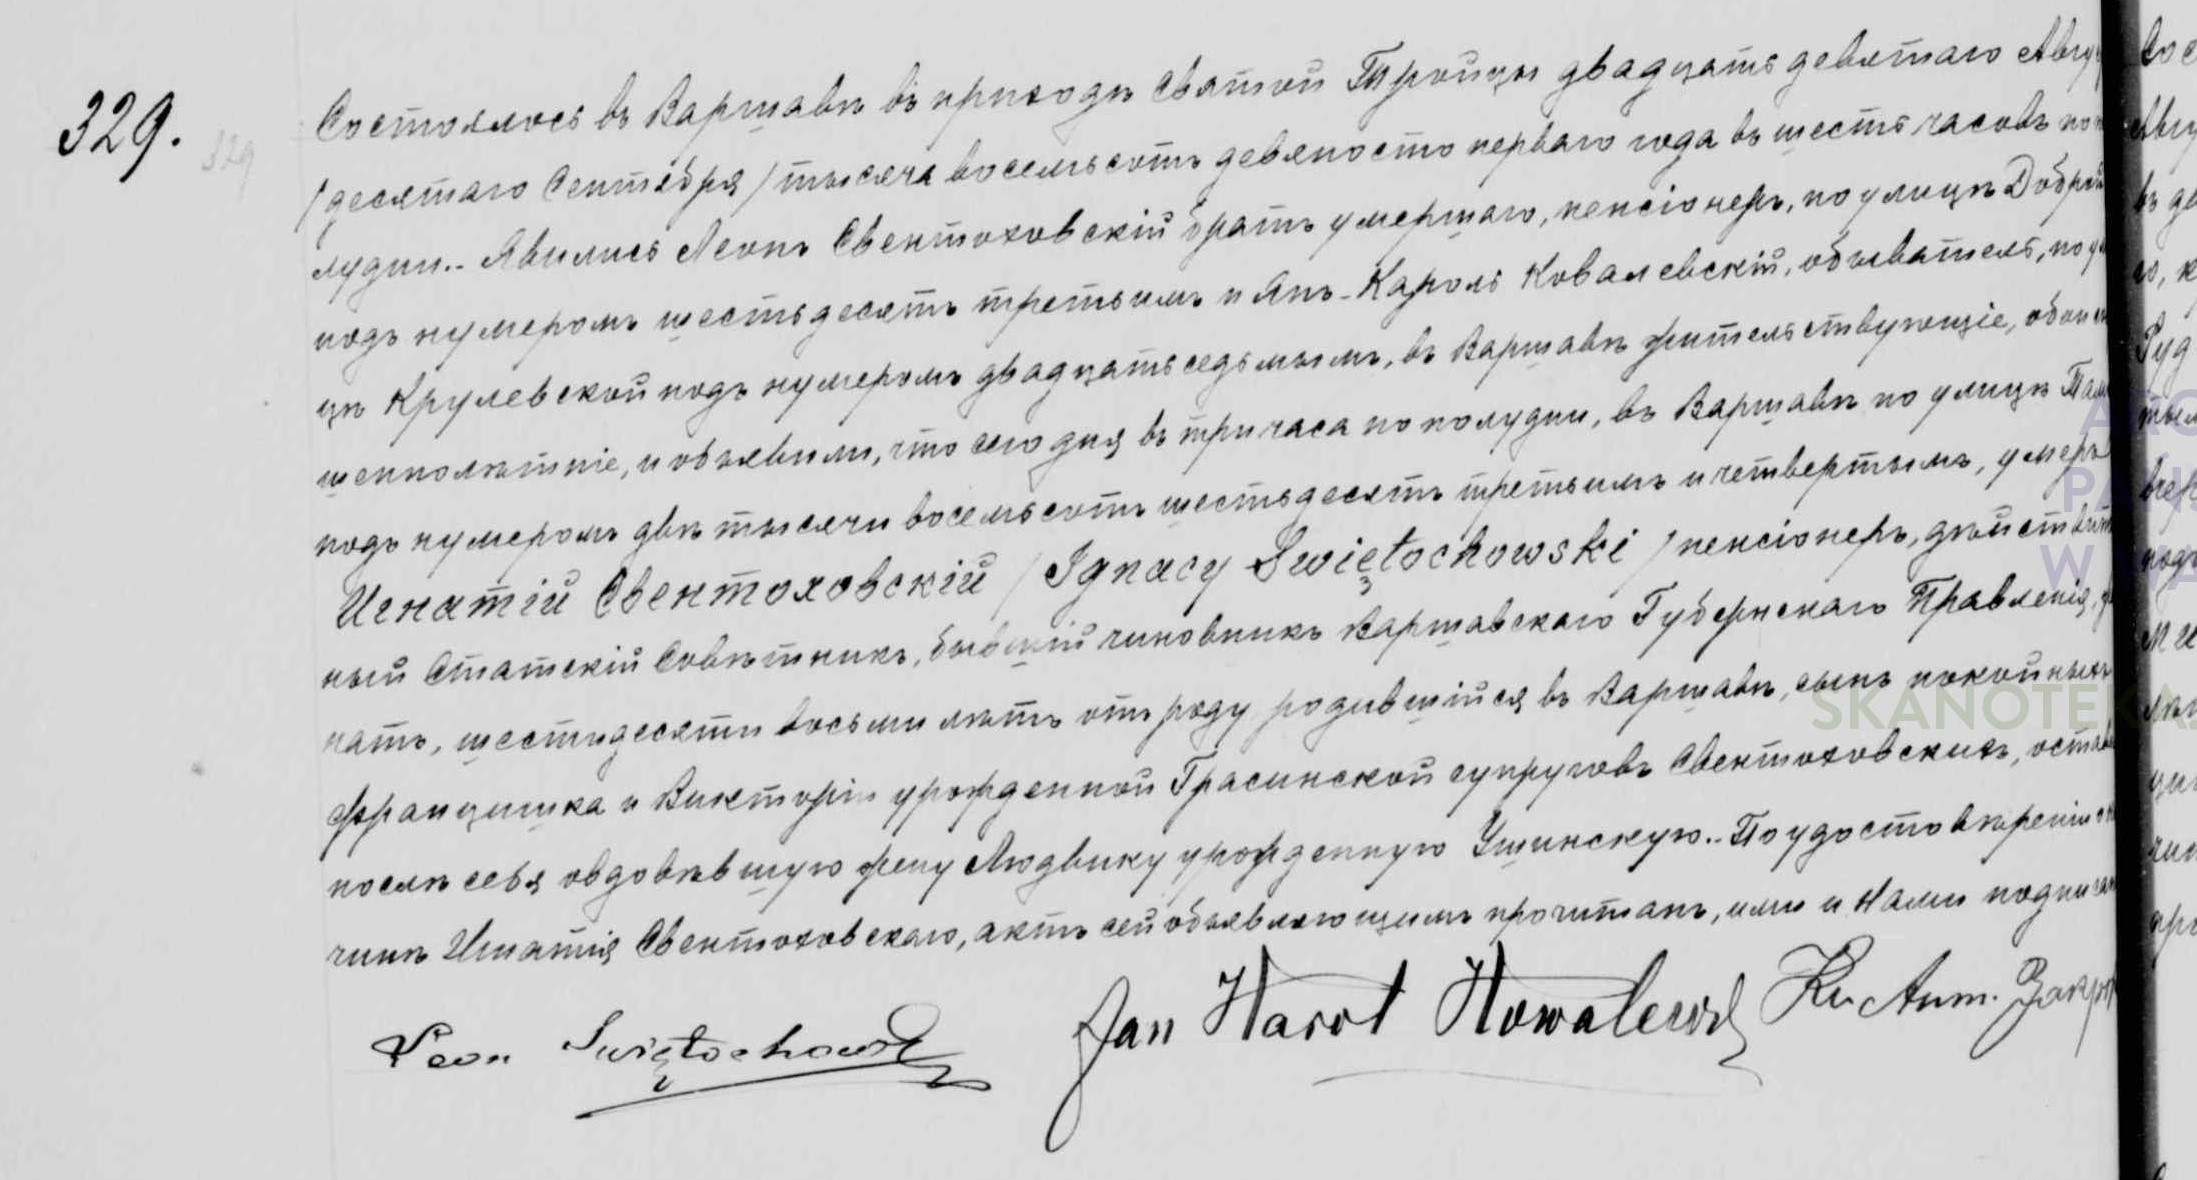 329.
329
Состоялось въ Варшавѣ въ приходѣ Святой Тройцы двадцать девятаго Авгу
/десятаго Сентября/ тысяча восемьсотъ девяносто перваго года въ шесть часовъ по
лудни.. Явились Леонъ Свентоховскій братъ умершаго, пенсіонеръ, по улицѣ Доброй
подъ нумеромъ шестьдесятъ третьимъ и Янъ-Кароль Ковалевскій, обыватель, по ули
цѣ Крулевской подъ нумеромъ двадцать седьмымъ, въ Варшавѣ жительствующіе, обои со
шеннолѣтніе, и объявили, что сего дня въ три часа по полудни, въ Варшавѣ по улицѣ Там
подъ нумеромъ двѣ тысячи восемьсотъ шестьдесятъ третьимъ и четвертымъ, умеръ
Игнатій Свентоховскій /Ignacy Swiętochowski/ пенсіонеръ, дѣйствит
ный Статскій Совѣтникъ, бывшій чиновникъ Варшавскаго Губернскаго Правленія,
натъ, шестидесяти восьми лѣтъ отъ роду родившійся въ Варшавѣ, сынъ покойныхъ
Францишка и Викторіи урожденной Грасинской супруговъ Свентоховскихъ, остав
послѣ себя овдовѣвшую жену Людвику урожденную Ушинскую.. По удостовѣреніи о кон
чинѣ Игнатія Свентоховскаго, актъ сей объявляющимъ прочитанъ, ими и Нами подписан
Leon Swiętochowski Jan Karol Kowalewski Кс. Ант. Закр
SKANOTEKA